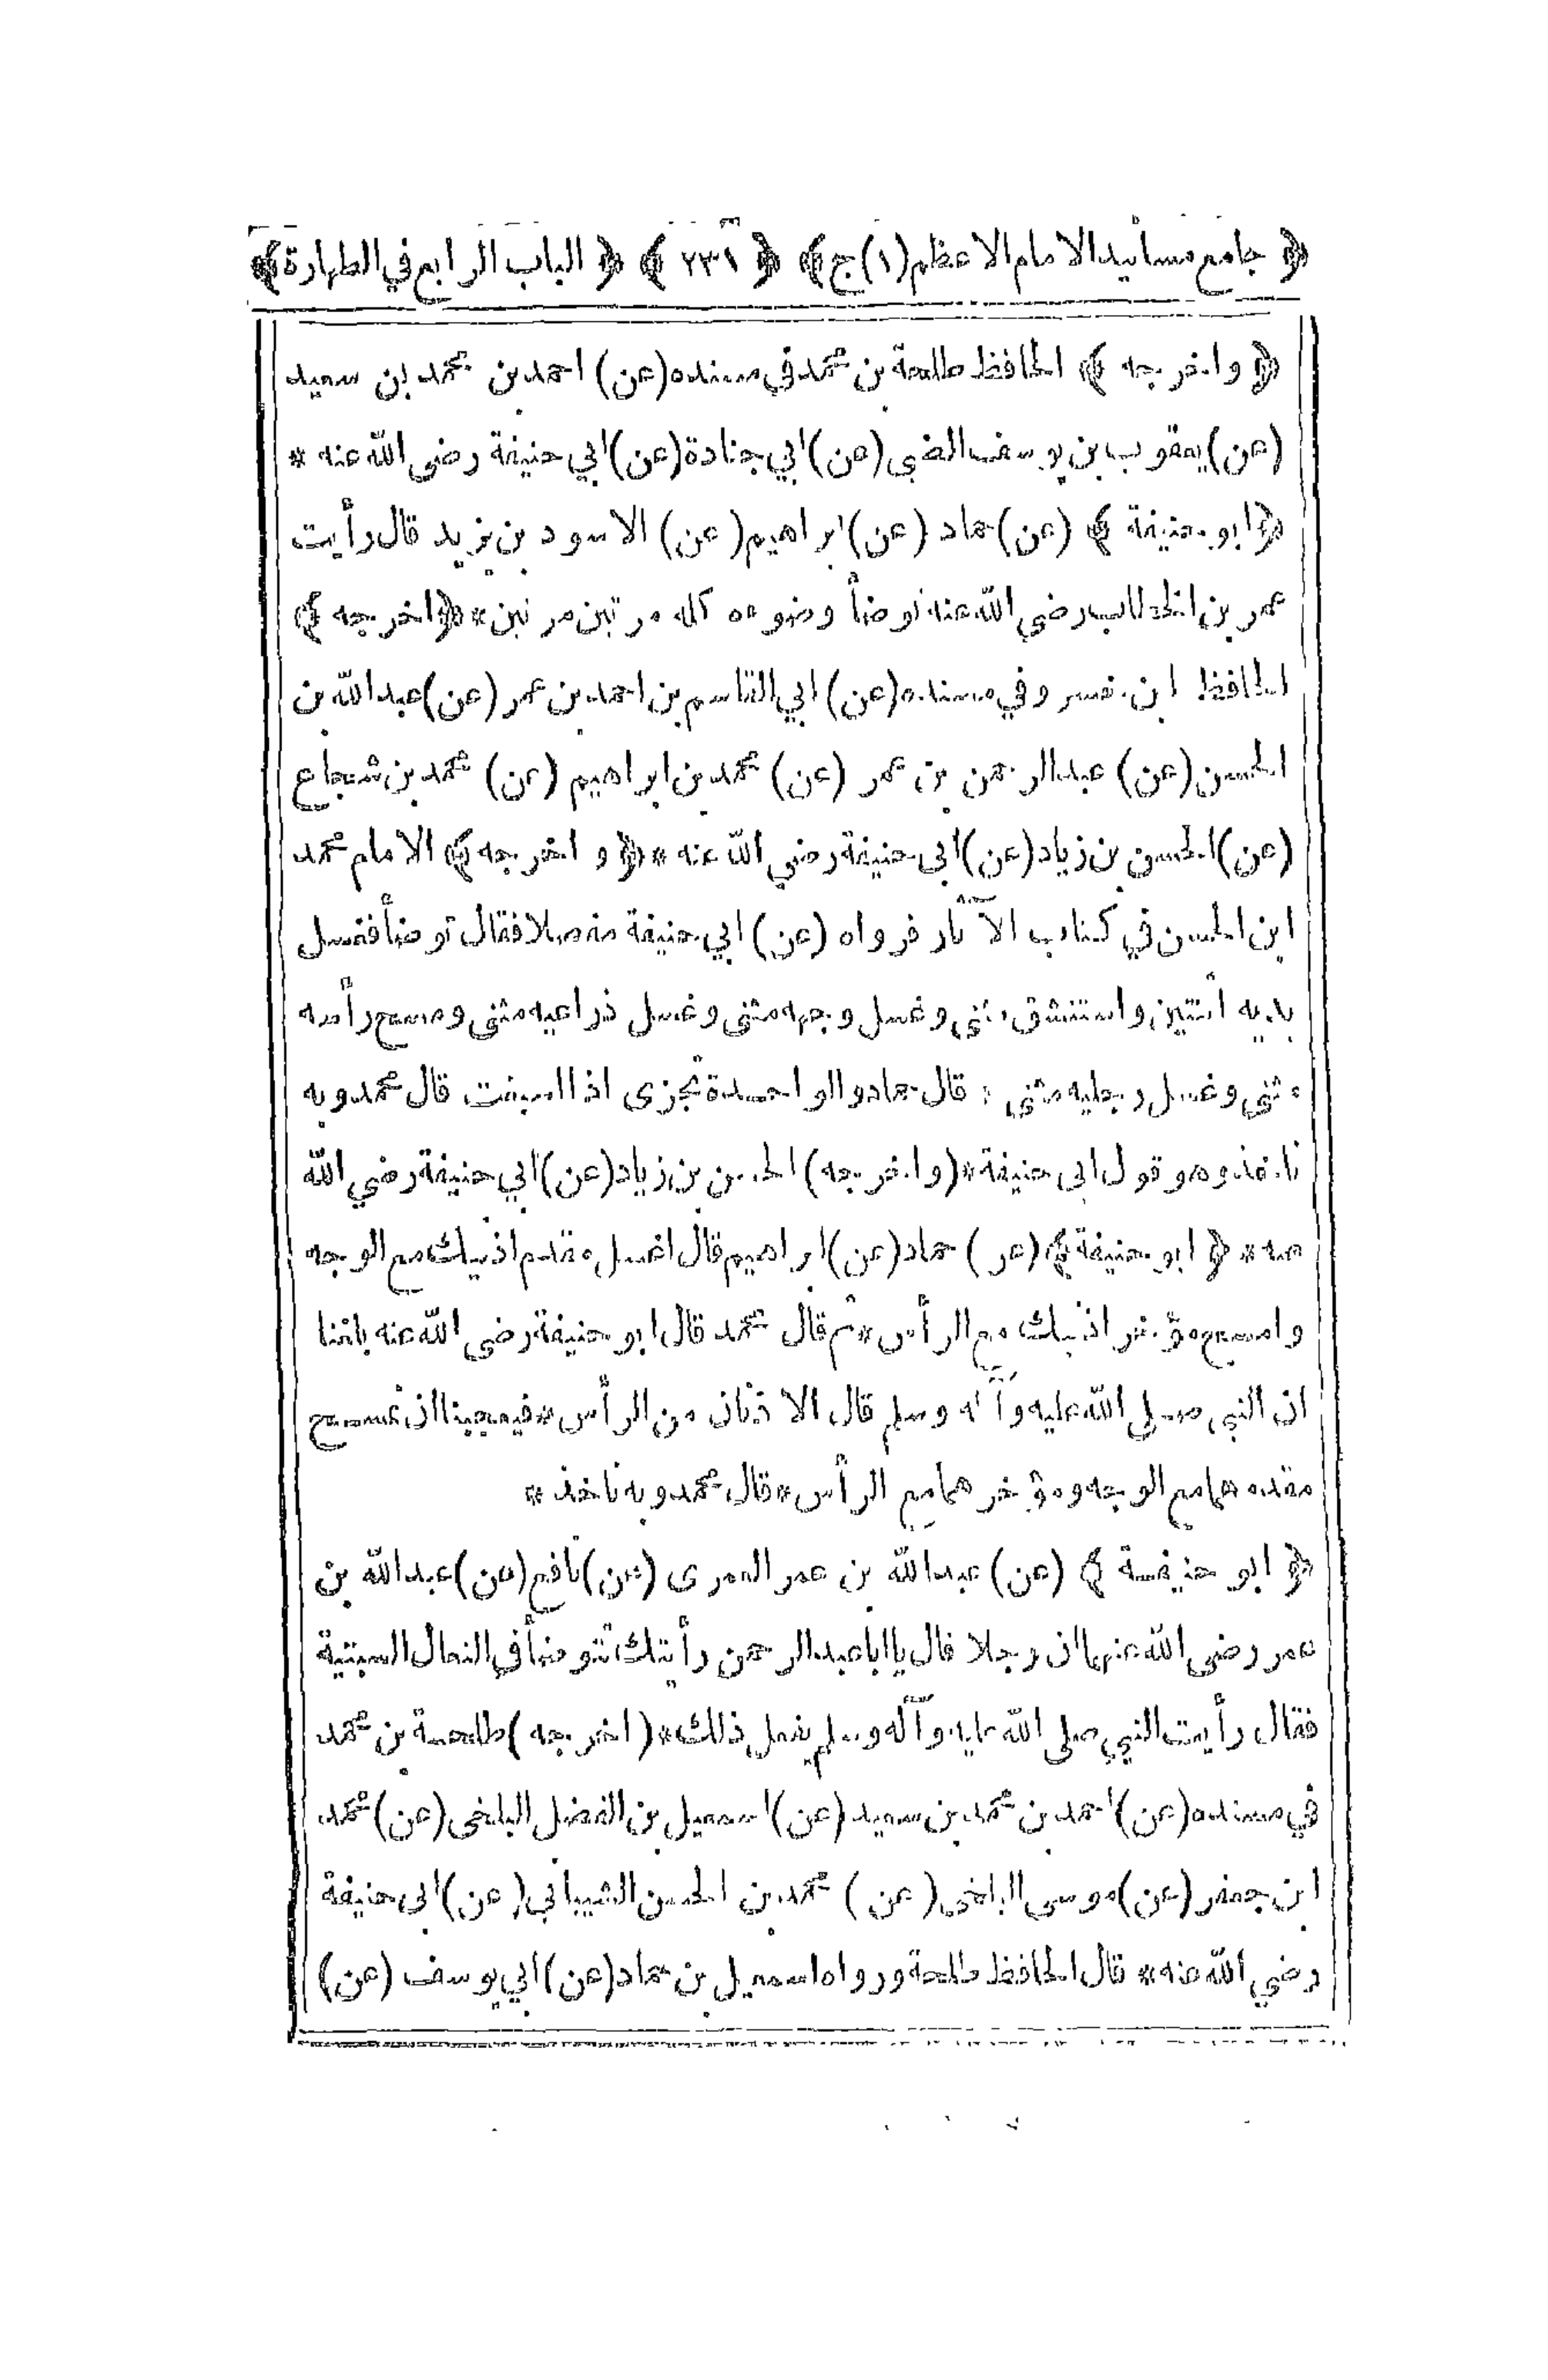 ﴿ جامع مسانيد الامام الاعظم (١) ج ﴾ ﴿ ٢٣١ ﴾ ﴿ الباب الرابع في الطهارة ﴾
﴿ واخرجه ﴾ الحافظ طلحة بن محمد في مسنده (عن) احمد بن محمد بن سعيد
(عن) يعقوب بن يوسف الضبي (عن) ابي جنادة (عن) ابي حنيفة رضى الله عنه *
﴿ ابو حنيفة ﴾ (عن) حماد (عن) ابراهيم (عن) الاسود بن يزيد قال رأيت
عمر بن الخطاب رضي الله عنه توضأ وضوءه كله مرتين مرتين * ﴿ اخرجه ﴾
الحافظ ابن خسرو في مسنده (عن) ابي القاسم بن احمد بن عمر (عن) عبد الله بن
الحسن (عن) عبد الرحمن بن عمر (عن) محمد بن ابراهيم (عن) محمد بن شجاع
(عن) الحسن بن زياد (عن) ابى حنيفة رضي الله عنه * ﴿ واخرجه ﴾ الامام محمد
ابن الحسن في كتاب الآثار فرواه (عن) ابي حنيفة مفصلا فقال توضأ فغسل
يديه اثنتين واستنشق مثنى وغسل وجهه مثنى وغسل ذراعيه مثنى ومسح رأسه
مثنى وغسل رجليه مثنى * قال حماد والواحدة تجزى اذا اسبغت قال محمد وبه
ناخذ وهو قول ابى حنيفة * (واخرجه) الحسن بن زياد (عن) ابي حنيفة رضي الله
عنه * ﴿ ابو حنيفة ﴾ (عن) حماد (عن) ابراهيم قال اغسل مقدم اذنيك مع الوجه
وامسح مؤخر اذنيك مع الرأس * ثم قال محمد قال ابو حنيفة رضى الله عنه بلغنا
ان النبي صلى الله عليه وآله وسلم قال الاذنان من الرأس * فيعجبنا ان نمسح
مقدمهما مع الوجه ومؤخرهما مع الرأس * قال محمد وبه ناخذ *
﴿ ابو حنيفة ﴾ (عن) عبد الله بن عمر العمرى (عن) نافع (عن) عبد الله بن
عمر رضى الله عنهما ان رجلا قال يا ابا عبد الرحمن رأيتك تتوضأ في النعال السبتية
فقال رأيت النبي صلى الله عليه وآله وسلم يفعل ذلك * (اخرجه) طلحة بن محمد
في مسنده (عن) احمد بن محمد بن سعيد (عن) اسمعيل بن الفضل البلخى (عن) محمد
ابن جعفر (عن) موسى البلخى (عن) محمد بن الحسن الشيباني (عن) ابى حنيفة
رضي الله عنه * قال الحافظ طلحة ورواه اسمعيل بن حماد (عن) ابي يوسف (عن)